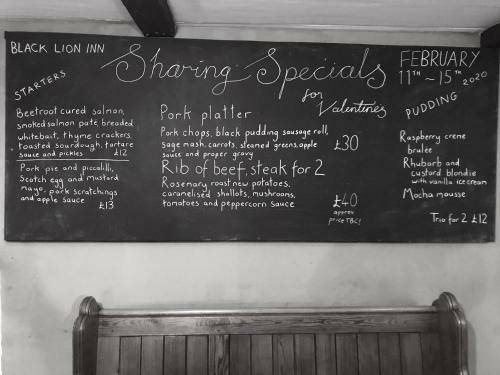 BLACK LION INN
Sharing Specials
for
Valentines
FEBRUARY
11TH ~ 15TH 2020
STARTERS
Beetroot cured salmon,
smoked salmon pate, breaded
whitebait, thyme crackers,
toasted sourdough, tartare
sauce and pickles £12
Pork pie and piccalilli,
Scotch egg and mustard
mayo, pork scratchings
and apple sauce £13
Pork platter
Pork chops, black pudding sausage roll,
sage mash, carrots, steamed greens, apple
sauce and proper gravy £30
Rib of beef, steak for 2
Rosemary roast new potatoes,
caramelised shallots, mushrooms,
tomatoes and peppercorn sauce £40
approx
price TBC!
PUDDING
Raspberry creme
brulee
Rhubarb and
custard blondie
with vanilla ice cream
Mocha mousse
Trio for 2 £12